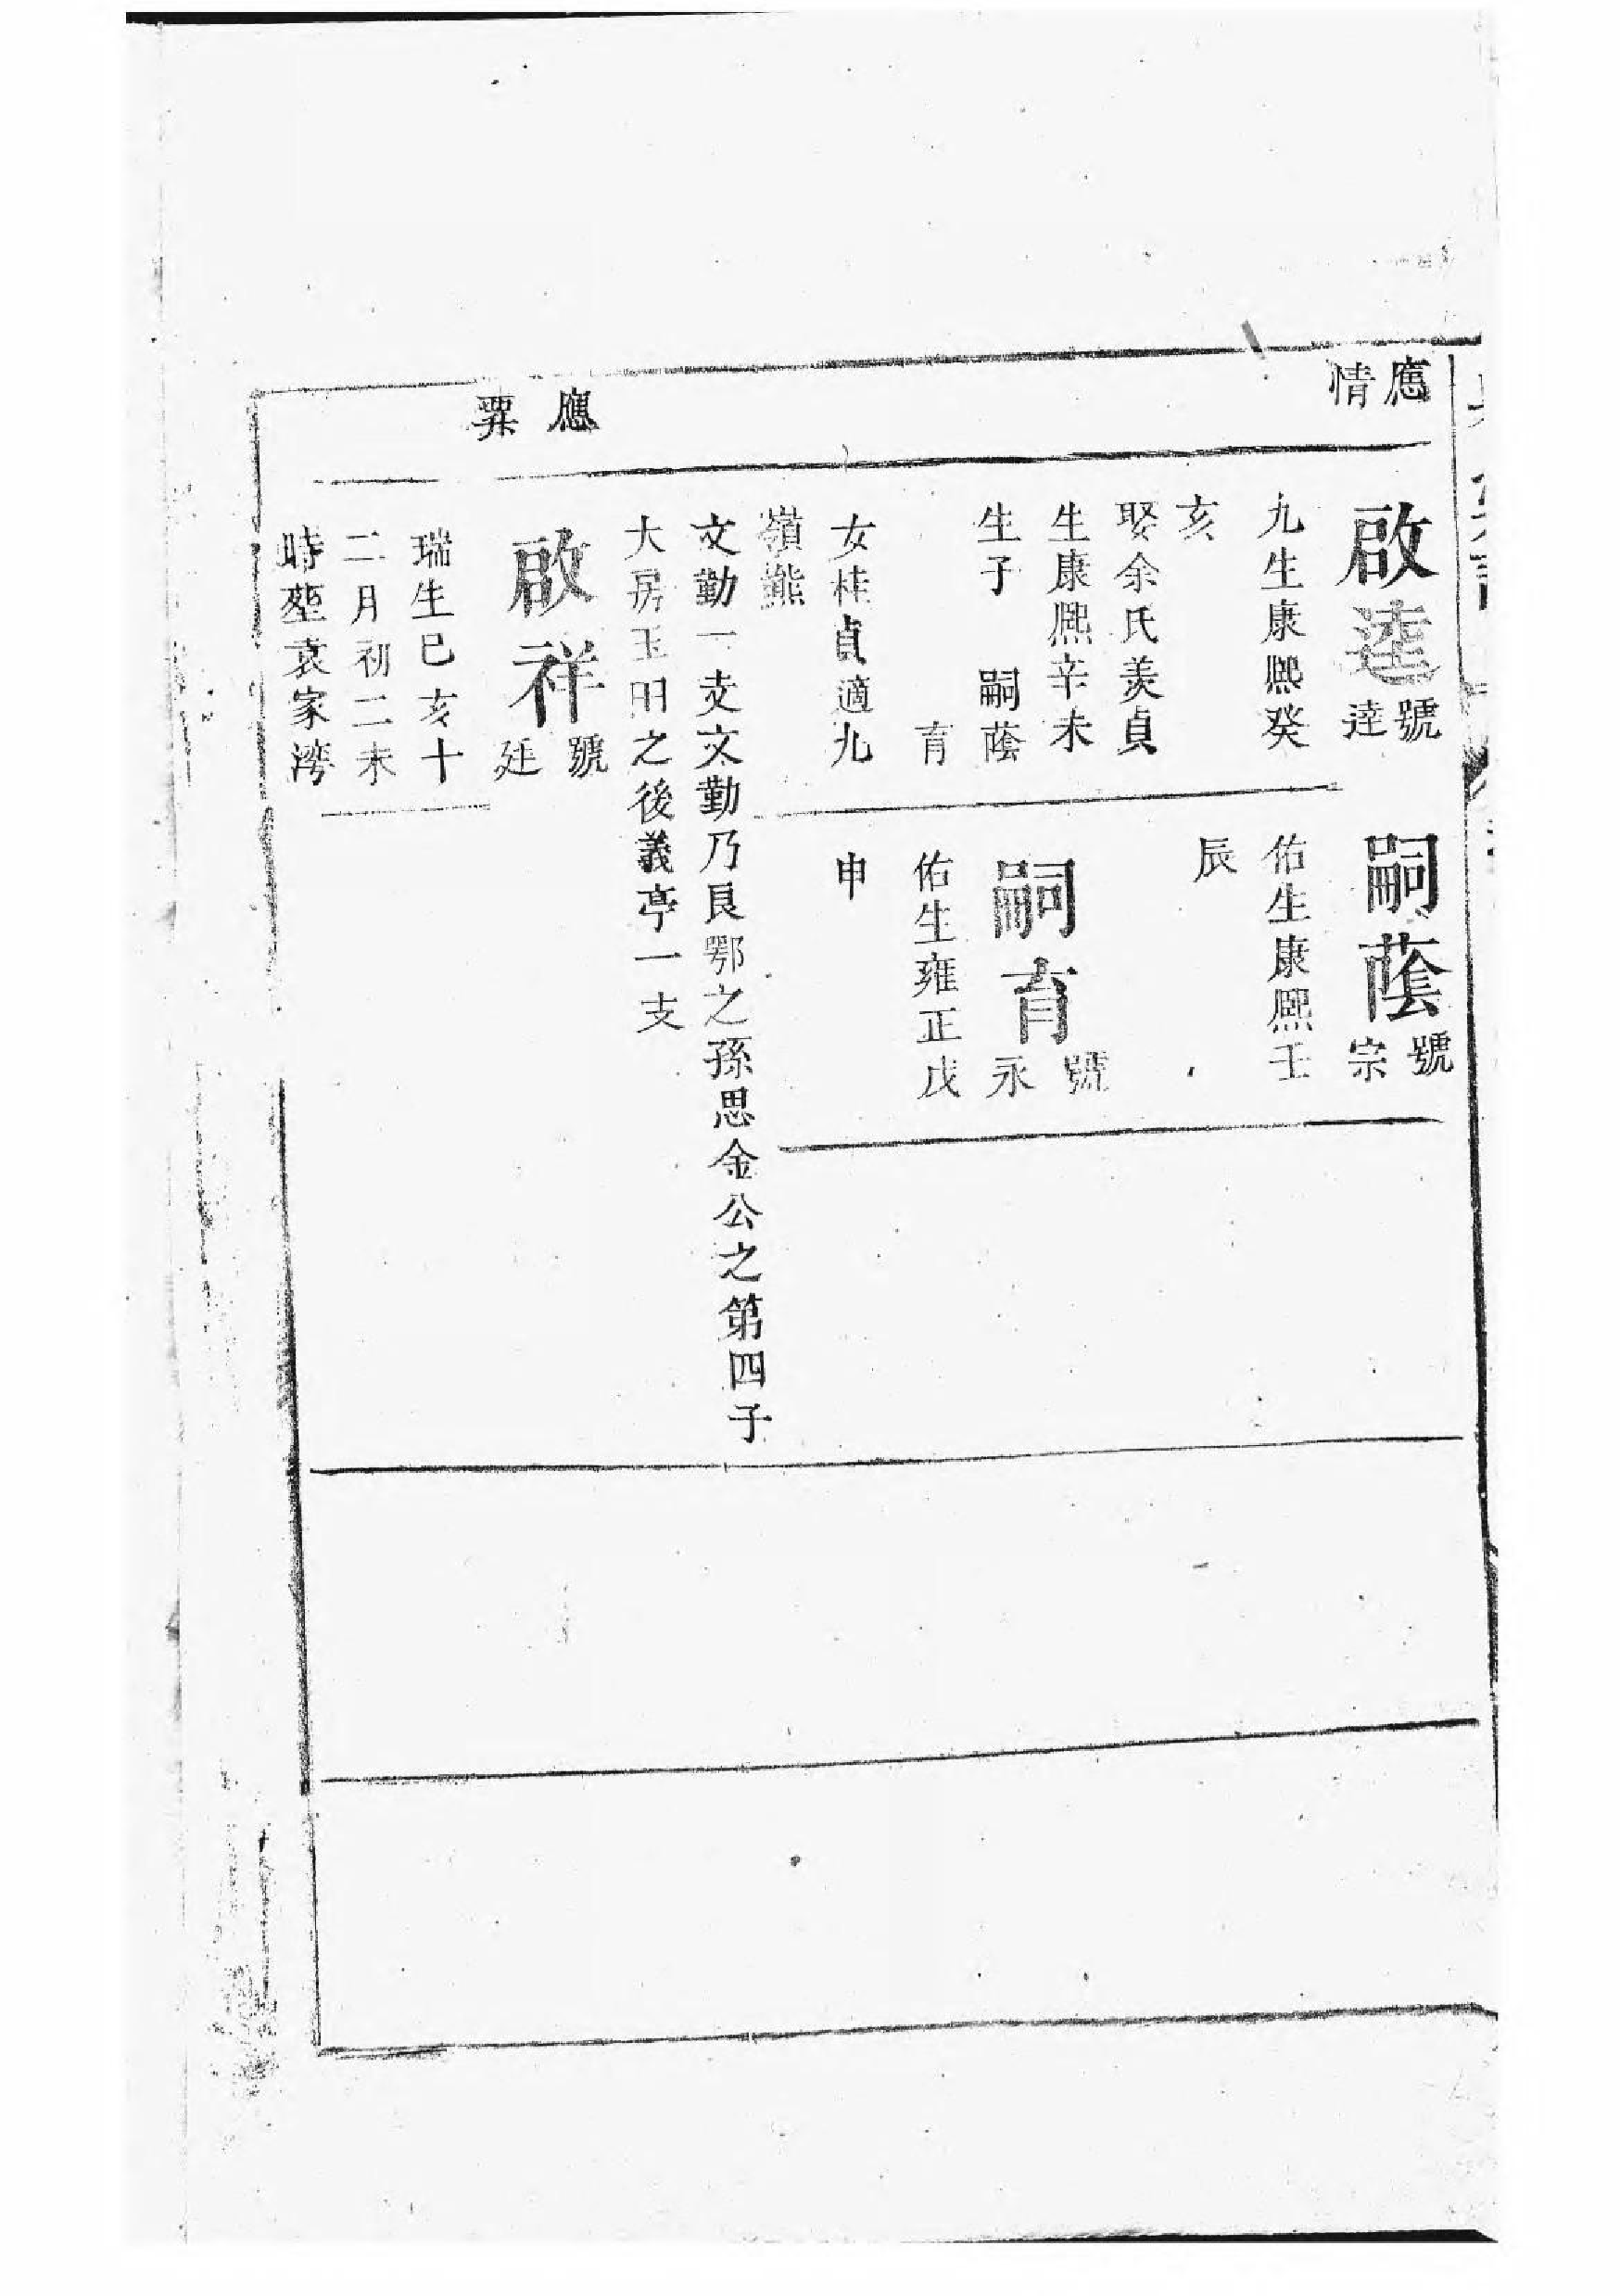 應
情
啟逵號
逵
九生康熙癸
亥
娶余氏羡貞
生康熙辛未
生子 嗣蔭
育
女桂貞適九
嶺熊
嗣蔭號
宗
佑生康熙壬
辰
嗣育號
永
佑生雍正戊
申
文勤一支文勤乃良鄂之孫思金公之第四子
大房玉田之後義亭一支
應
票
啟祥號
廷
瑞生巳亥十
二月初二未
時塟袁家灣